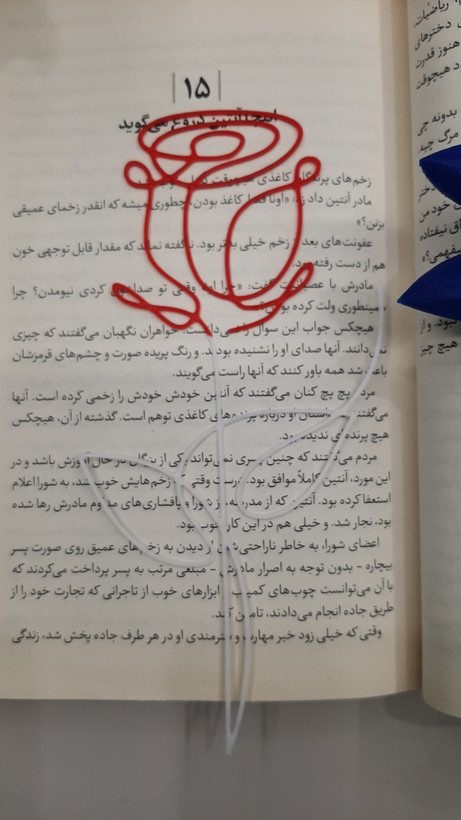 ۱۵
اینجا آنتین دروغ می‌گوید
زخم‌های کاغذی هیچ‌وقت
مادر آنتین داد زد: «اونا فقط کاغذ بودن. چطوری میشه که انقدر زخمای عمیقی
بزنن؟»
عفونت‌های بعد از زخم خیلی بدتر بود. نگفته نماند که مقدار قابل توجهی خون
هم از دست رفته بود.
مادرش با گفت: «چرا وقتی تو کردی نیومدن؟ چرا
همینطوری ولت کرده
هیچکس جواب این سوال را نمی‌دانست. خواهران نگهبان می‌گفتند که چیزی
نمی‌دانند. آنها صدای او را نشنیده بودند. و رنگ پریده صورت و چشم‌های قرمزشان
باعث شد همه باور کنند که آنها راست می‌گویند.
مردم پچ پچ کنان می‌گفتند که آنتین خودش خودش را زخمی کرده است. آنها
می‌گفتند داستان او درباره پرنده‌های کاغذی توهم است. گذشته از آن، هیچکس
هیچ پرنده‌ای ندیده بود.
مردم می‌گفتند که چنین پسری نمی‌تواند یکی از بزرگان در حال آموزش باشد و در
این مورد، آنتین کاملاً موافق بود. درست وقتی که زخم‌هایش خوب شد، به شورا اعلام
استعفا کرده بود. آنتین که از مدرسه، از شورا و پافشاری‌های مداوم مادرش رها شده
بود، نجار شد. و خیلی هم در این کار خوب بود.
اعضای شورا، به خاطر ناراحتی‌شان از دیدن به زخم‌های عمیق روی صورت پسر
بیچاره - بدون توجه به اصرار مادرش - مبلغی مرتب به پسر پرداخت می‌کردند که
با آن می‌توانست چوب‌های کمیاب و ابزارهای خوب از تاجرانی که تجارت خود را از
طریق جاده انجام می‌دادند، تامین کند.
وقتی که خیلی زود خبر مهارت و هنرمندی او در هر طرف جاده پخش شد، زندگی